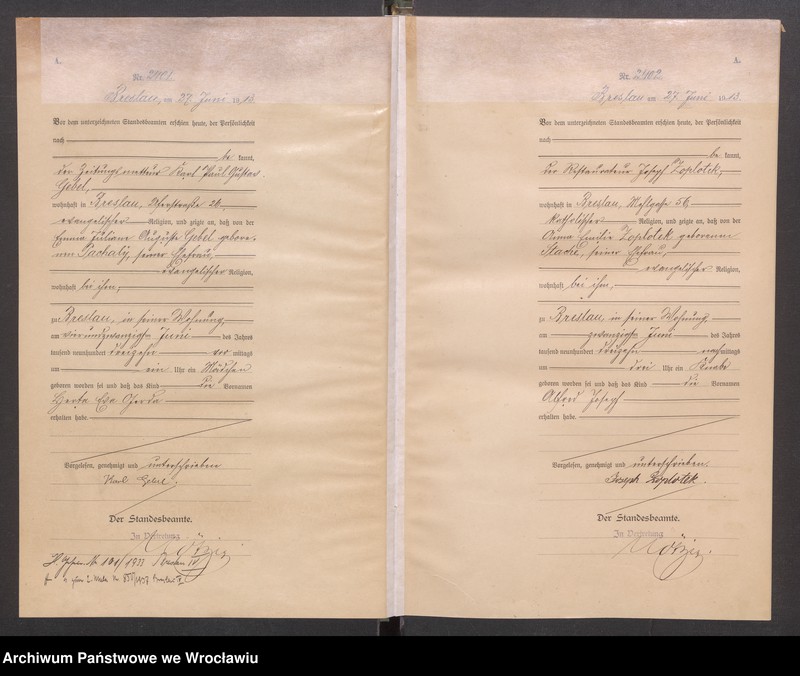 A.
Nr. 2401.
Breslau, am 27. Juni 1913.
Vor dem unterzeichneten Standesbeamten erschien heute, der Persönlichkeit
nach
be kannt,
der Zeitungsmetteur Karl Paul Gustav
Gebel,
wohnhaft in Breslau, 26,
evangelischer Religion, und zeigte an, daß von der
Emma Juliane Auguste Gebel gebore-
nen Pachaly, seiner Ehefrau,
evangelischer Religion,
wohnhaft bei ihm,
zu Breslau, in seiner Wohnung,
am vierundzwanzigsten Juni des Jahres
tausend neunhundert dreizehn vormittags
um ein Uhr ein Mädchen
geboren worden sei und daß das Kind die Vornamen
Herta Eva
erhalten habe.
Vorgelesen, genehmigt und unterschrieben
Karl Gebel.
Der Standesbeamte.
In Vertretung
A.
Nr. 2402.
Breslau am 27. Juni 1913.
Vor dem unterzeichneten Standesbeamten erschien heute, der Persönlichkeit
nach
be kannt,
der Restaurateur Josef Zoplotek,
wohnhaft in Breslau, Mehlgasse 56,
katholischer Religion, und zeigte an, daß von der
Anna Emilie Zoplotek geborenen
seiner Ehefrau,
evangelischer Religion,
wohnhaft bei ihm,
zu Breslau, in seiner Wohnung,
am zwanzigsten Juni des Jahres
tausend neunhundert dreizehn nachmittags
um drei Uhr ein Knabe
geboren worden sei und daß das Kind die Vornamen
Alfred Josef
erhalten habe.
Vorgelesen, genehmigt und unterschrieben
Joseph Zoplotek.
Der Standesbeamte.
In Vertretung
Archiwum Państwowe we Wrocławiu